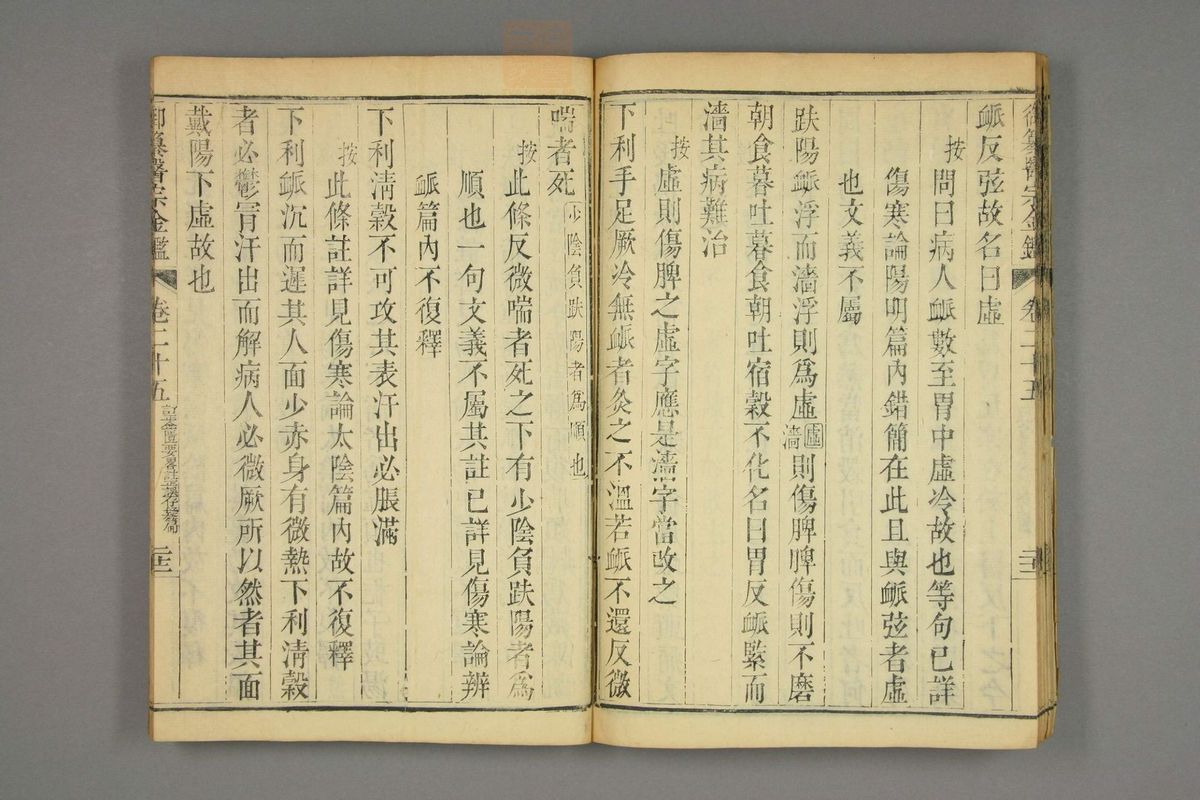 御纂醫宗金鑑 卷二十五
衇反弦故名曰虛
按問曰病人衇數至胃中虛冷故也等句已詳
傷寒論陽明篇內錯簡在此且與衇弦者虛
也文義不屬
趺陽衇浮而濇浮則爲虛虛濇則傷脾脾傷則不磨
朝食暮吐暮食朝吐宿穀不化名曰胃反衇緊而
濇其病難治
按虛則傷脾之虛字應是濇字當改之
下利手足厥冷無衇者灸之不溫若衇不還反微
喘者死少陰負趺陽者爲順也
按此條反微喘者死之下有少陰負趺陽者爲
順也一句文義不屬其註已詳見傷寒論辨
衇篇內不復釋
下利清穀不可攻其表汗出必脹滿
按此條註詳見傷寒論太陰篇內故不復釋
下利衇沉而遲其人面少赤身有微熱下利清穀
者必鬱冒汗出而解病人必微厥所以然者其面
戴陽下虛故也
御纂醫宗金鑑 卷二十五